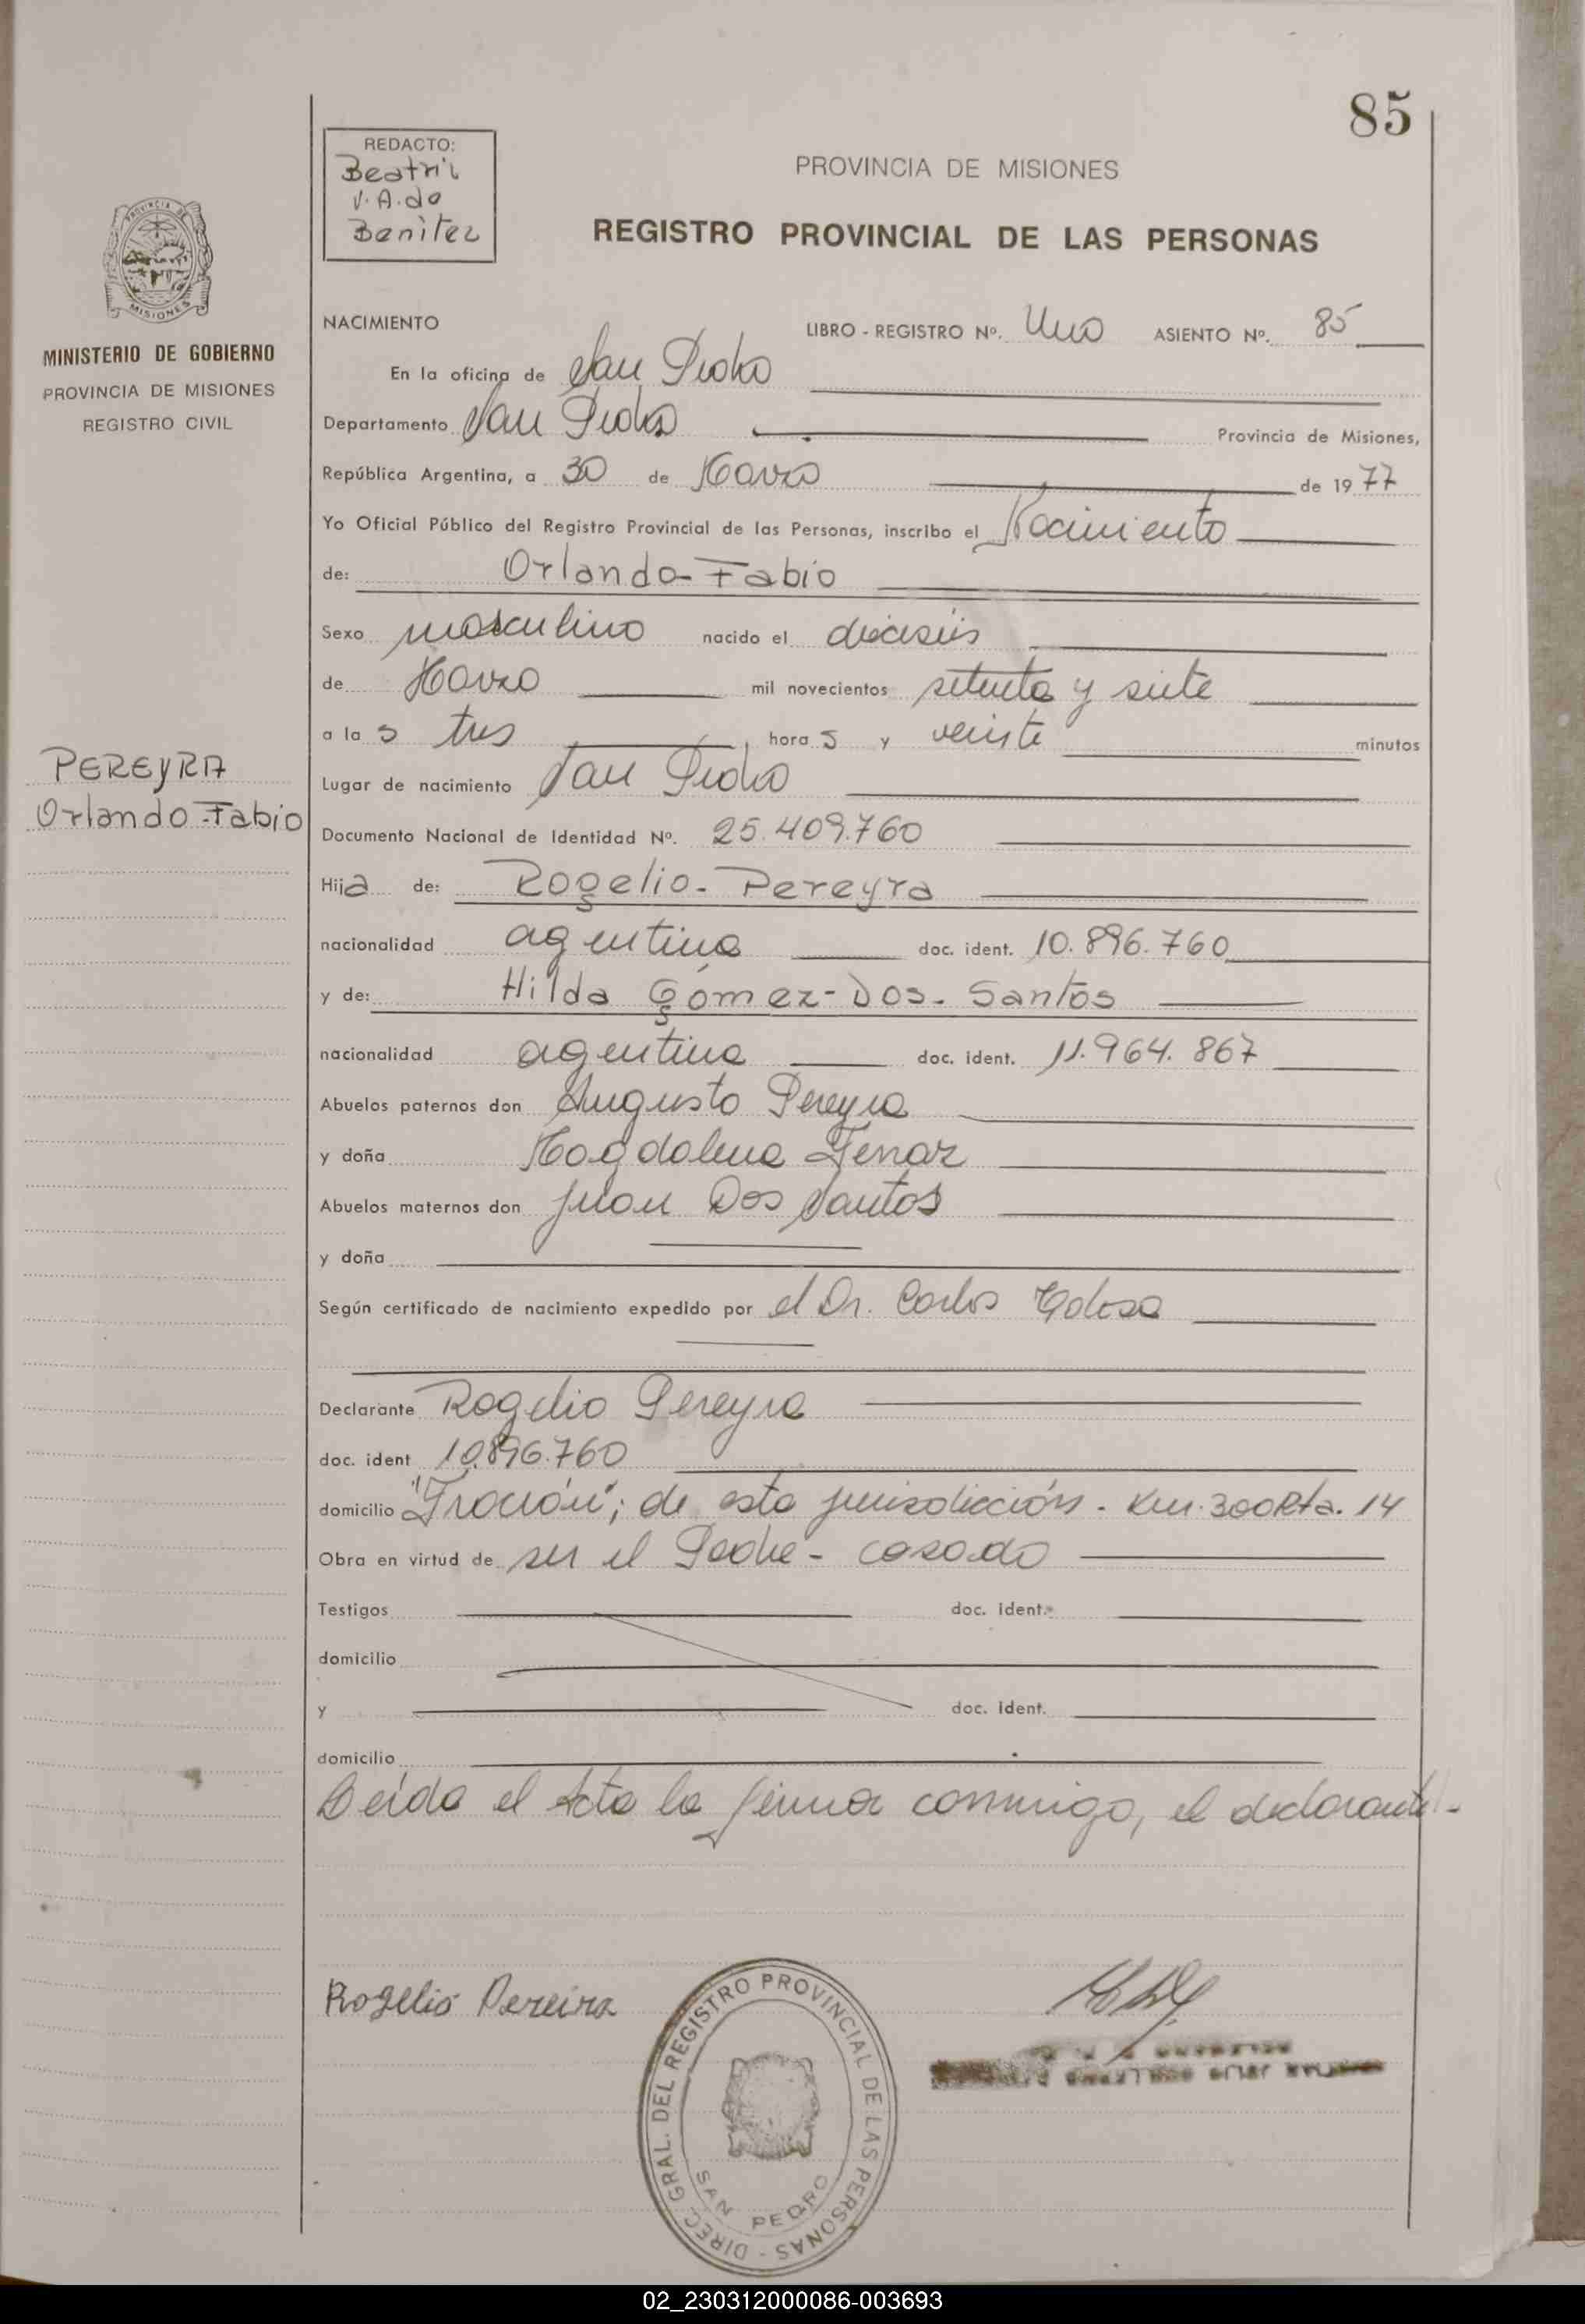 85
REDACTO:
Beatriz
V. A. de
Benitez
PROVINCIA DE MISIONES
REGISTRO PROVINCIAL DE LAS PERSONAS
PROVINCIA DE
MISIONES
MINISTERIO DE GOBIERNO
PROVINCIA DE MISIONES
REGISTRO CIVIL
PEREYRA
Orlando-Fabio
NACIMIENTO LIBRO - REGISTRO Nº. Uno ASIENTO Nº. 85
En la oficina de San Pedro
Departamento San Pedro Provincia de Misiones,
República Argentina, a 30 de Marzo de 1977
Yo Oficial Público del Registro Provincial de las Personas, inscribo el Nacimiento
de: Orlando-Fabio
Sexo masculino nacido el dieciséis
de Marzo mil novecientos setenta y siete
a las tres horas y veinte minutos
Lugar de nacimiento San Pedro
Documento Nacional de Identidad Nº. 25.409.760
Hijo de: Rogelio- Pereyra
nacionalidad agentina doc. ident. 10.896.760
y de: Hilda Gómez-Dos-Santos
nacionalidad agentina doc. ident. 11.964.867
Abuelos paternos don Augusto Pereyra
y doña Magdalena
Abuelos maternos don Juan Dos Santos
y doña
Según certificado de nacimiento expedido por el Dr. Carlos
Declarante Rogelio Pereyra
doc. ident 10.896.760
domicilio de esta jurisdicción - Km. 300 Rta. 14
Obra en virtud de ser el Padre - casado
Testigos doc. ident.
domicilio
y doc. ident.
domicilio
Leída el Acta la firma conmigo, el declarante.-
Rogelio Pereira
DIREC. GRAL. DEL REGISTRO PROVINCIAL DE LAS PERSONAS -
SAN PEDRO
02_230312000086-003693